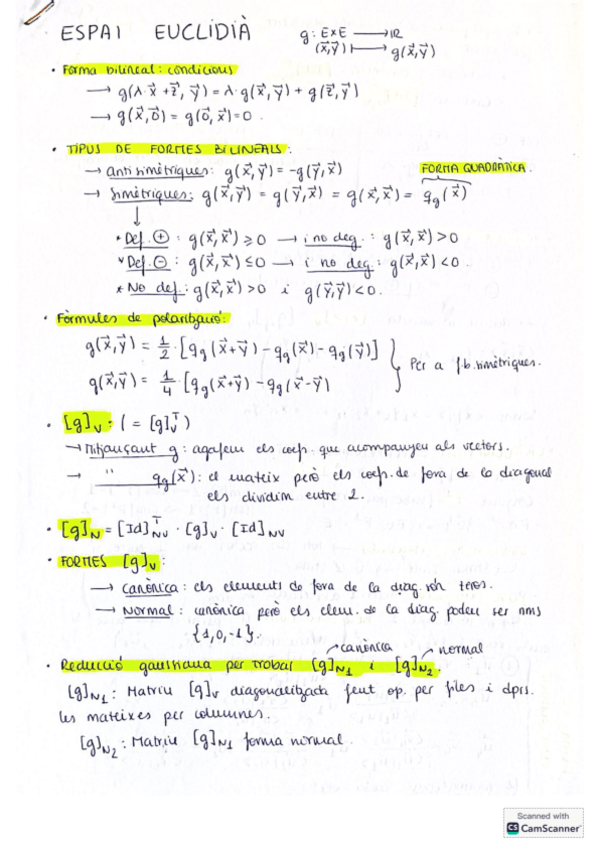 ESPAI EUCLIDIÀ
g: E×E ⟶ IR
(x⃗,y⃗) ⟼ g(x⃗,y⃗)
· Forma bilineal: condicions
⟶ g(λ·x⃗+z⃗, y⃗) = λ·g(x⃗,y⃗) + g(z⃗,y⃗)
⟶ g(x⃗,0⃗) = g(0⃗,x⃗)=0.
· TIPUS DE FORMES BILINEALS:
→ antisimètriques: g(x⃗,y⃗) = -g(y⃗,x⃗)
FORMA QUADRÀTICA.
→ simètriques: g(x⃗,y⃗) = g(y⃗,x⃗) = g(x⃗,x⃗) = q_g(x⃗)
↓
* Def. ⊕ : g(x⃗,x⃗) ≥ 0 ⟶ i no deg. : g(x⃗,x⃗) > 0
* Def. ⊖ : g(x⃗,x⃗) ≤ 0 ⟶ i no deg : g(x⃗,x⃗) < 0.
* No def.: g(x⃗,x⃗) > 0 i g(y⃗,y⃗) < 0.
· Fórmules de polarització:
g(x⃗,y⃗) = 1/2 · [q_g(x⃗+y⃗) - q_g(x⃗) - q_g(y⃗)]
} Per a f.b. simètriques.
g(x⃗,y⃗) = 1/4 · [q_g(x⃗+y⃗) - q_g(x⃗-y⃗)
· [g]_V : ( = [g]_V^T )
→ Mitjançant g: agafem els coef. que acompanyen als vectors.
→ " q_g(x⃗): el mateix però els coef. de fora de la diagonal
els dividim entre 2.
· [g]_N = [Id]_NV^T · [g]_V · [Id]_NV
· FORMES [g]_V :
⟶ Canònica: els elements de fora de la diag. són zeros.
⟶ Normal: canònica però els elem. de la diag. poden ser nms
{1,0,-1}.
→ canònica → normal
· Reducció gaussiana per trobar [g]_N1 i [g]_N2.
[g]_N1 : Matriu [g]_V diagonalitzada fent op. per files i dprs.
les mateixes per columnes.
[g]_N2 : Matriu [g]_N1 forma normal.
Scanned with
CS CamScanner